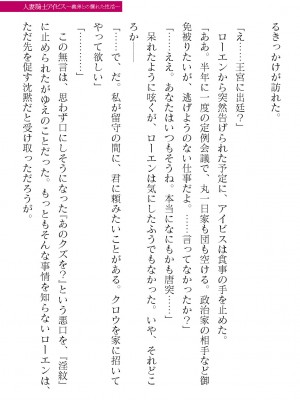 人妻騎士アイビス～義弟との爛れた性活～
るきっかけが訪れた。
「え…王宮に出廷?」
ローエンから突然告げられた予定に、アイビスは食事の手を止めた。
「ああ。半年に一度の定例会議で、丸一日家も団も空ける。政治家の相手など御
免被りたいが、逃げようのない仕事だよ。……言ってなかったか?」
「ええ、あなたはいつもそうね。本当になにもかも唐突…」
呆れたように呟くが、ローエンは気にしたふうでもなかった。いや、それどこ
ろか――
「……で、だ。私が留守の間に、君に頼みたいことがある。クロウを家に招いて
やって欲しい」
「――」
この無言は、思わず口にしそうになった「あのクズを?」という悪口を、『淫紋』
に止められたがゆえのことだった。もっともそんな事情を知らないローエンは、
ただ先を促す沈黙だと受け取っただろうが。